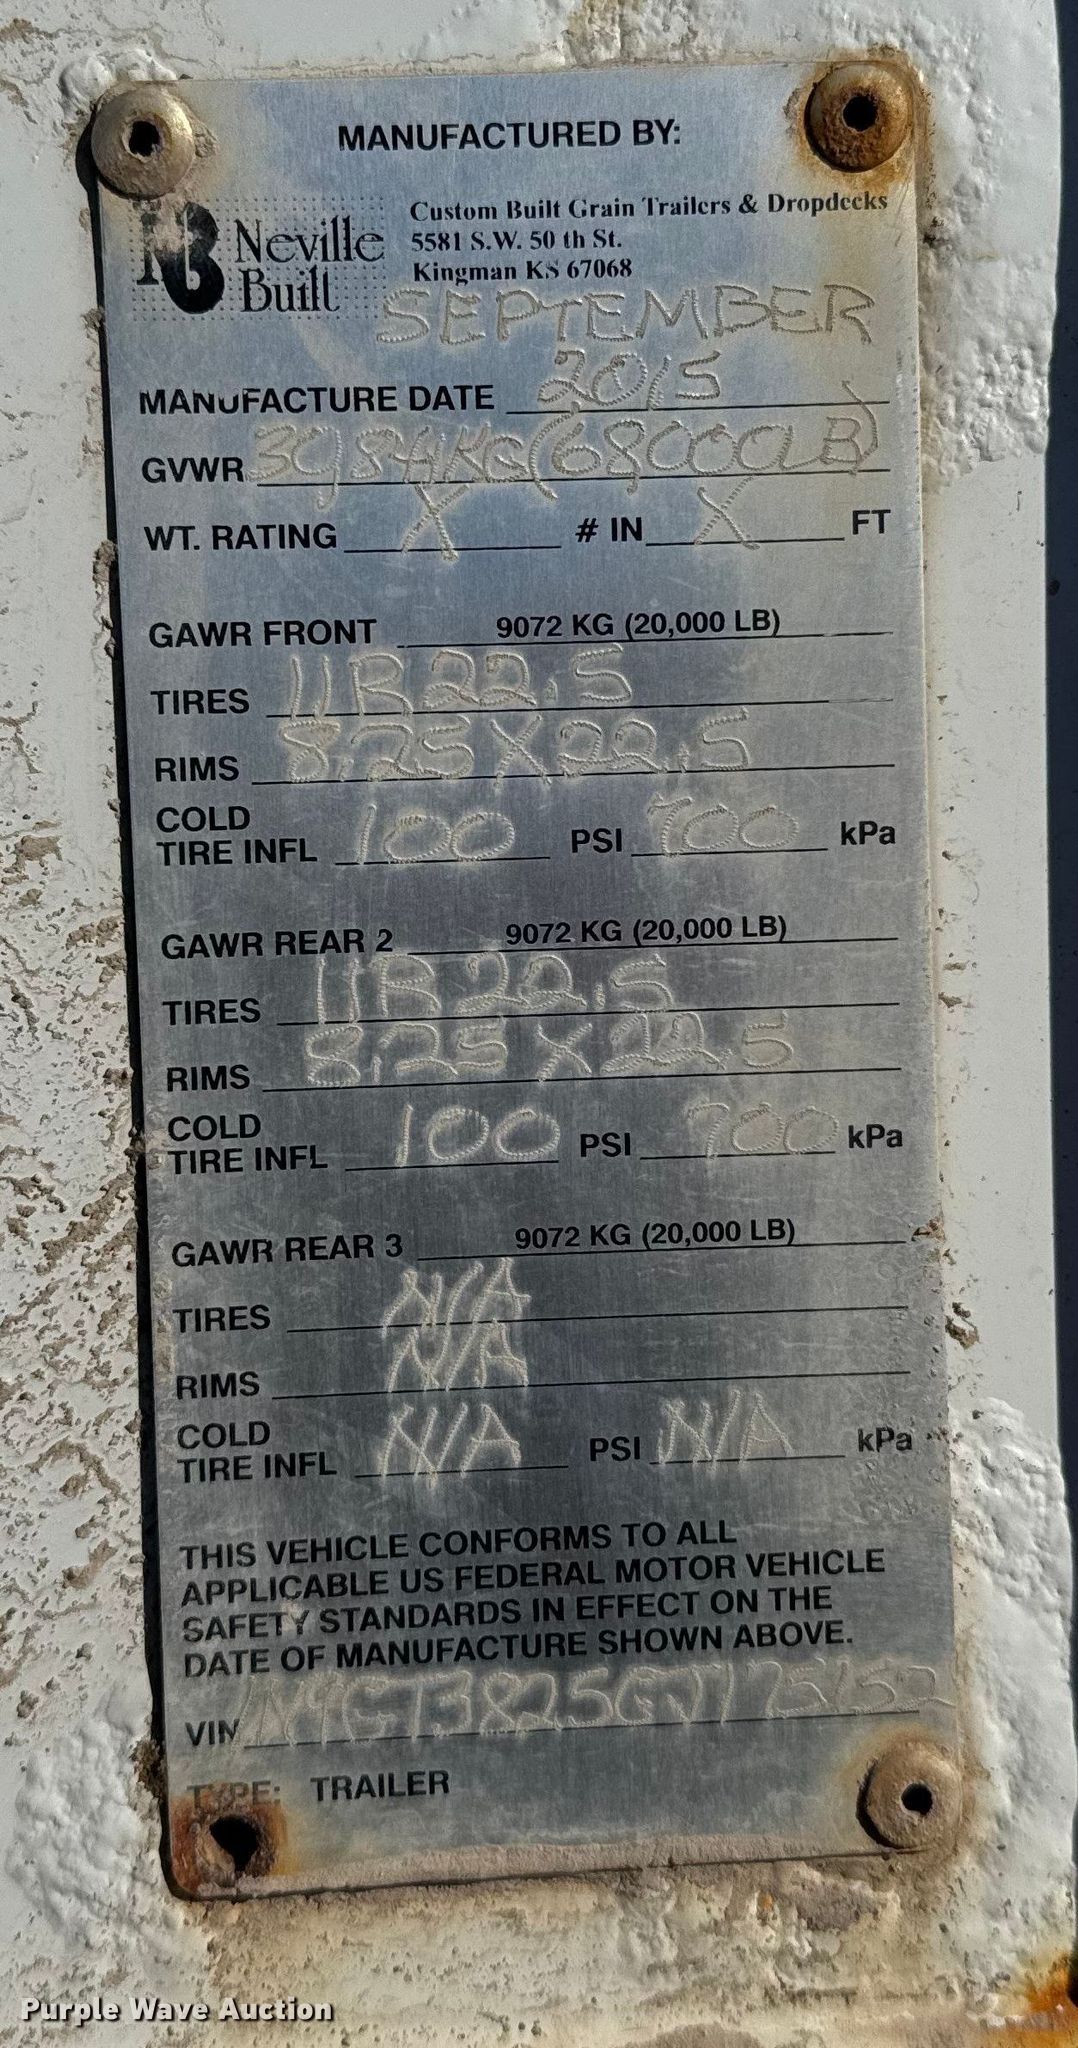 MANUFACTURED BY:
NB Neville Built
Custom Built Grain Trailers & Dropdecks
5581 S.W. 50 th St.
Kingman KS 67068
SEPTEMBER
MANUFACTURE DATE 2015
GVWR (68000LB)
WT. RATING X # IN X FT
GAWR FRONT 9072 KG (20,000 LB)
TIRES 11R22.5
RIMS 8.25X22.5
COLD
TIRE INFL 100 PSI 700 kPa
GAWR REAR 2 9072 KG (20,000 LB)
TIRES 11R22.5
RIMS 8.25X22.5
COLD
TIRE INFL 100 PSI 700 kPa
GAWR REAR 3 9072 KG (20,000 LB)
TIRES N/A
RIMS N/A
COLD
TIRE INFL N/A PSI N/A kPa
THIS VEHICLE CONFORMS TO ALL
APPLICABLE US FEDERAL MOTOR VEHICLE
SAFETY STANDARDS IN EFFECT ON THE
DATE OF MANUFACTURE SHOWN ABOVE.
VIN
TYPE: TRAILER
Purple Wave Auction